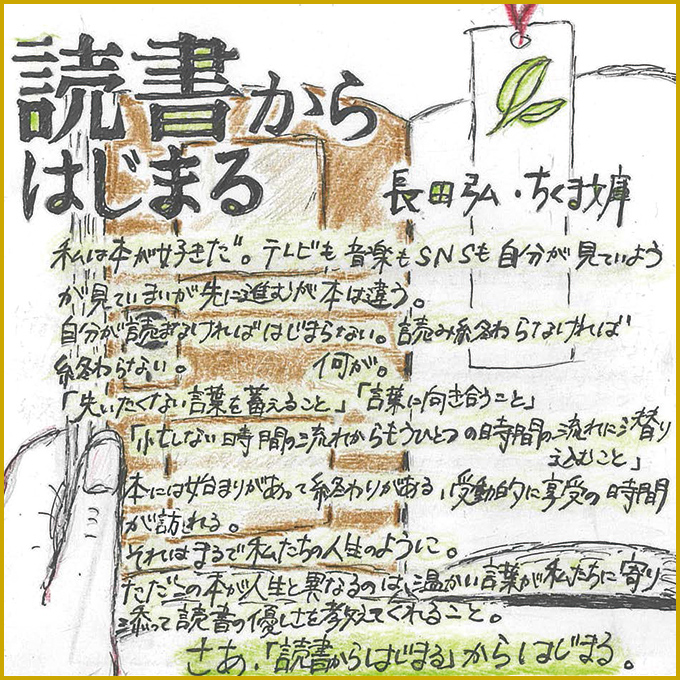 読書から
はじまる
長田弘・ちくま文庫
私は本が好きだ。テレビも音楽もSNSも自分が見ていよう
が見ていまいが先に進むが本は違う。
自分が読まなければはじまらない。読み終わらなければ
終わらない。 何が。
「失いたくない言葉を蓄えること」「言葉に向き合うこと」
時間の流れからもうひとつの時間の流れに滑り
込むこと」
本には始まりがあって終わりがある、受動的に享受の時間
が訪れる。
それはまるで私たちの人生のように。
ただこの本が人生と異なるのは、温かい言葉が私たちに寄り
添って読書の優しさを教えてくれること。
さあ、「読書からはじまる」からはじまる。